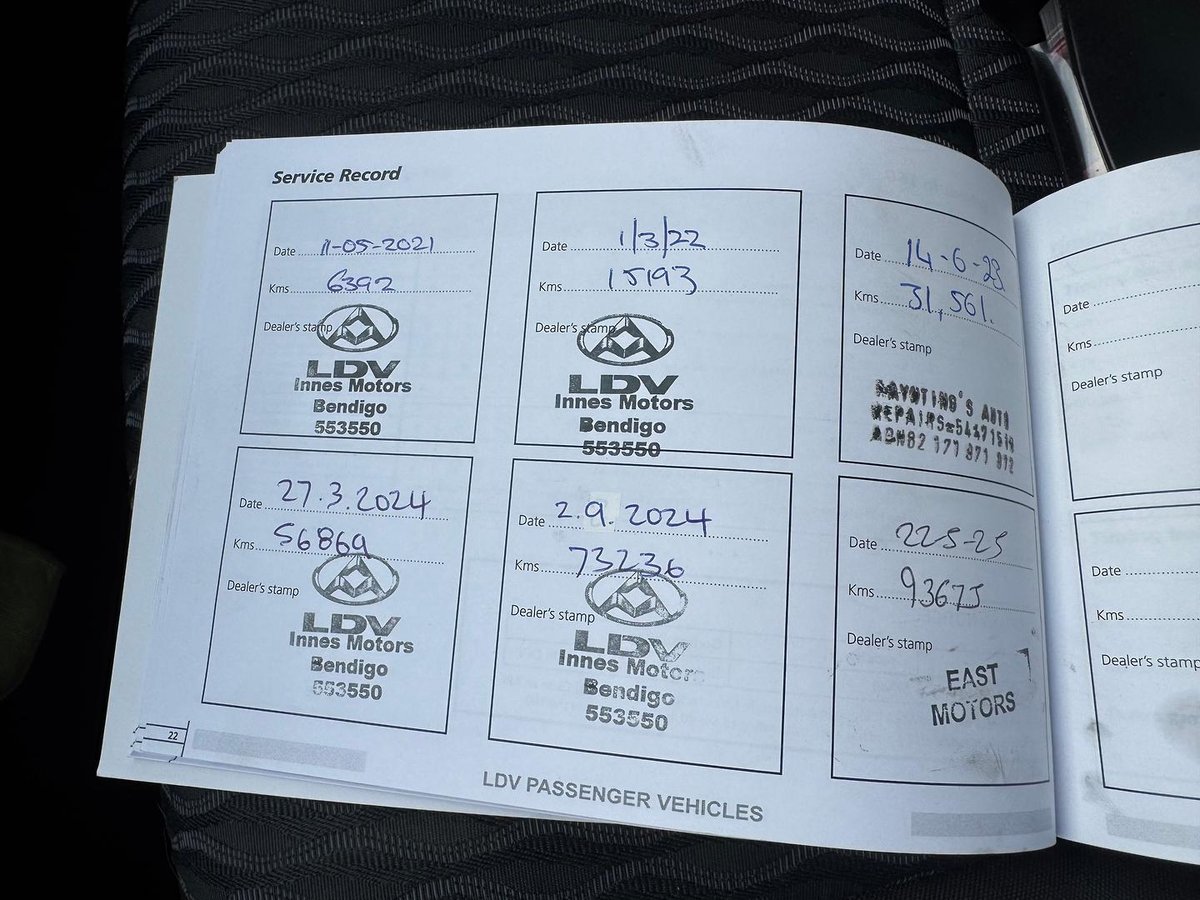 Service Record
Date 11-05-2021
Kms 6392
Dealer's stamp
LDV
Innes Motors
Bendigo
553550
Date 1/3/22
Kms 15193
Dealer's stamp
LDV
Innes Motors
Bendigo
553550
Date 14-6-23
Kms 31,561.
Dealer's stamp
AUTO
REPAIRS
ABN82 171 971
Date 27.3.2024
Kms 56869
Dealer's stamp
LDV
Innes Motors
Bendigo
553550
Date 2.9.2024
Kms 73236
Dealer's stamp
LDV
Innes Motors
Bendigo
553550
Date 22-5-25
Kms 93675
Dealer's stamp
EAST
MOTORS
22
LDV PASSENGER VEHICLES
Date
Kms
Dealer's stamp
Date
Kms
Dealer's stamp